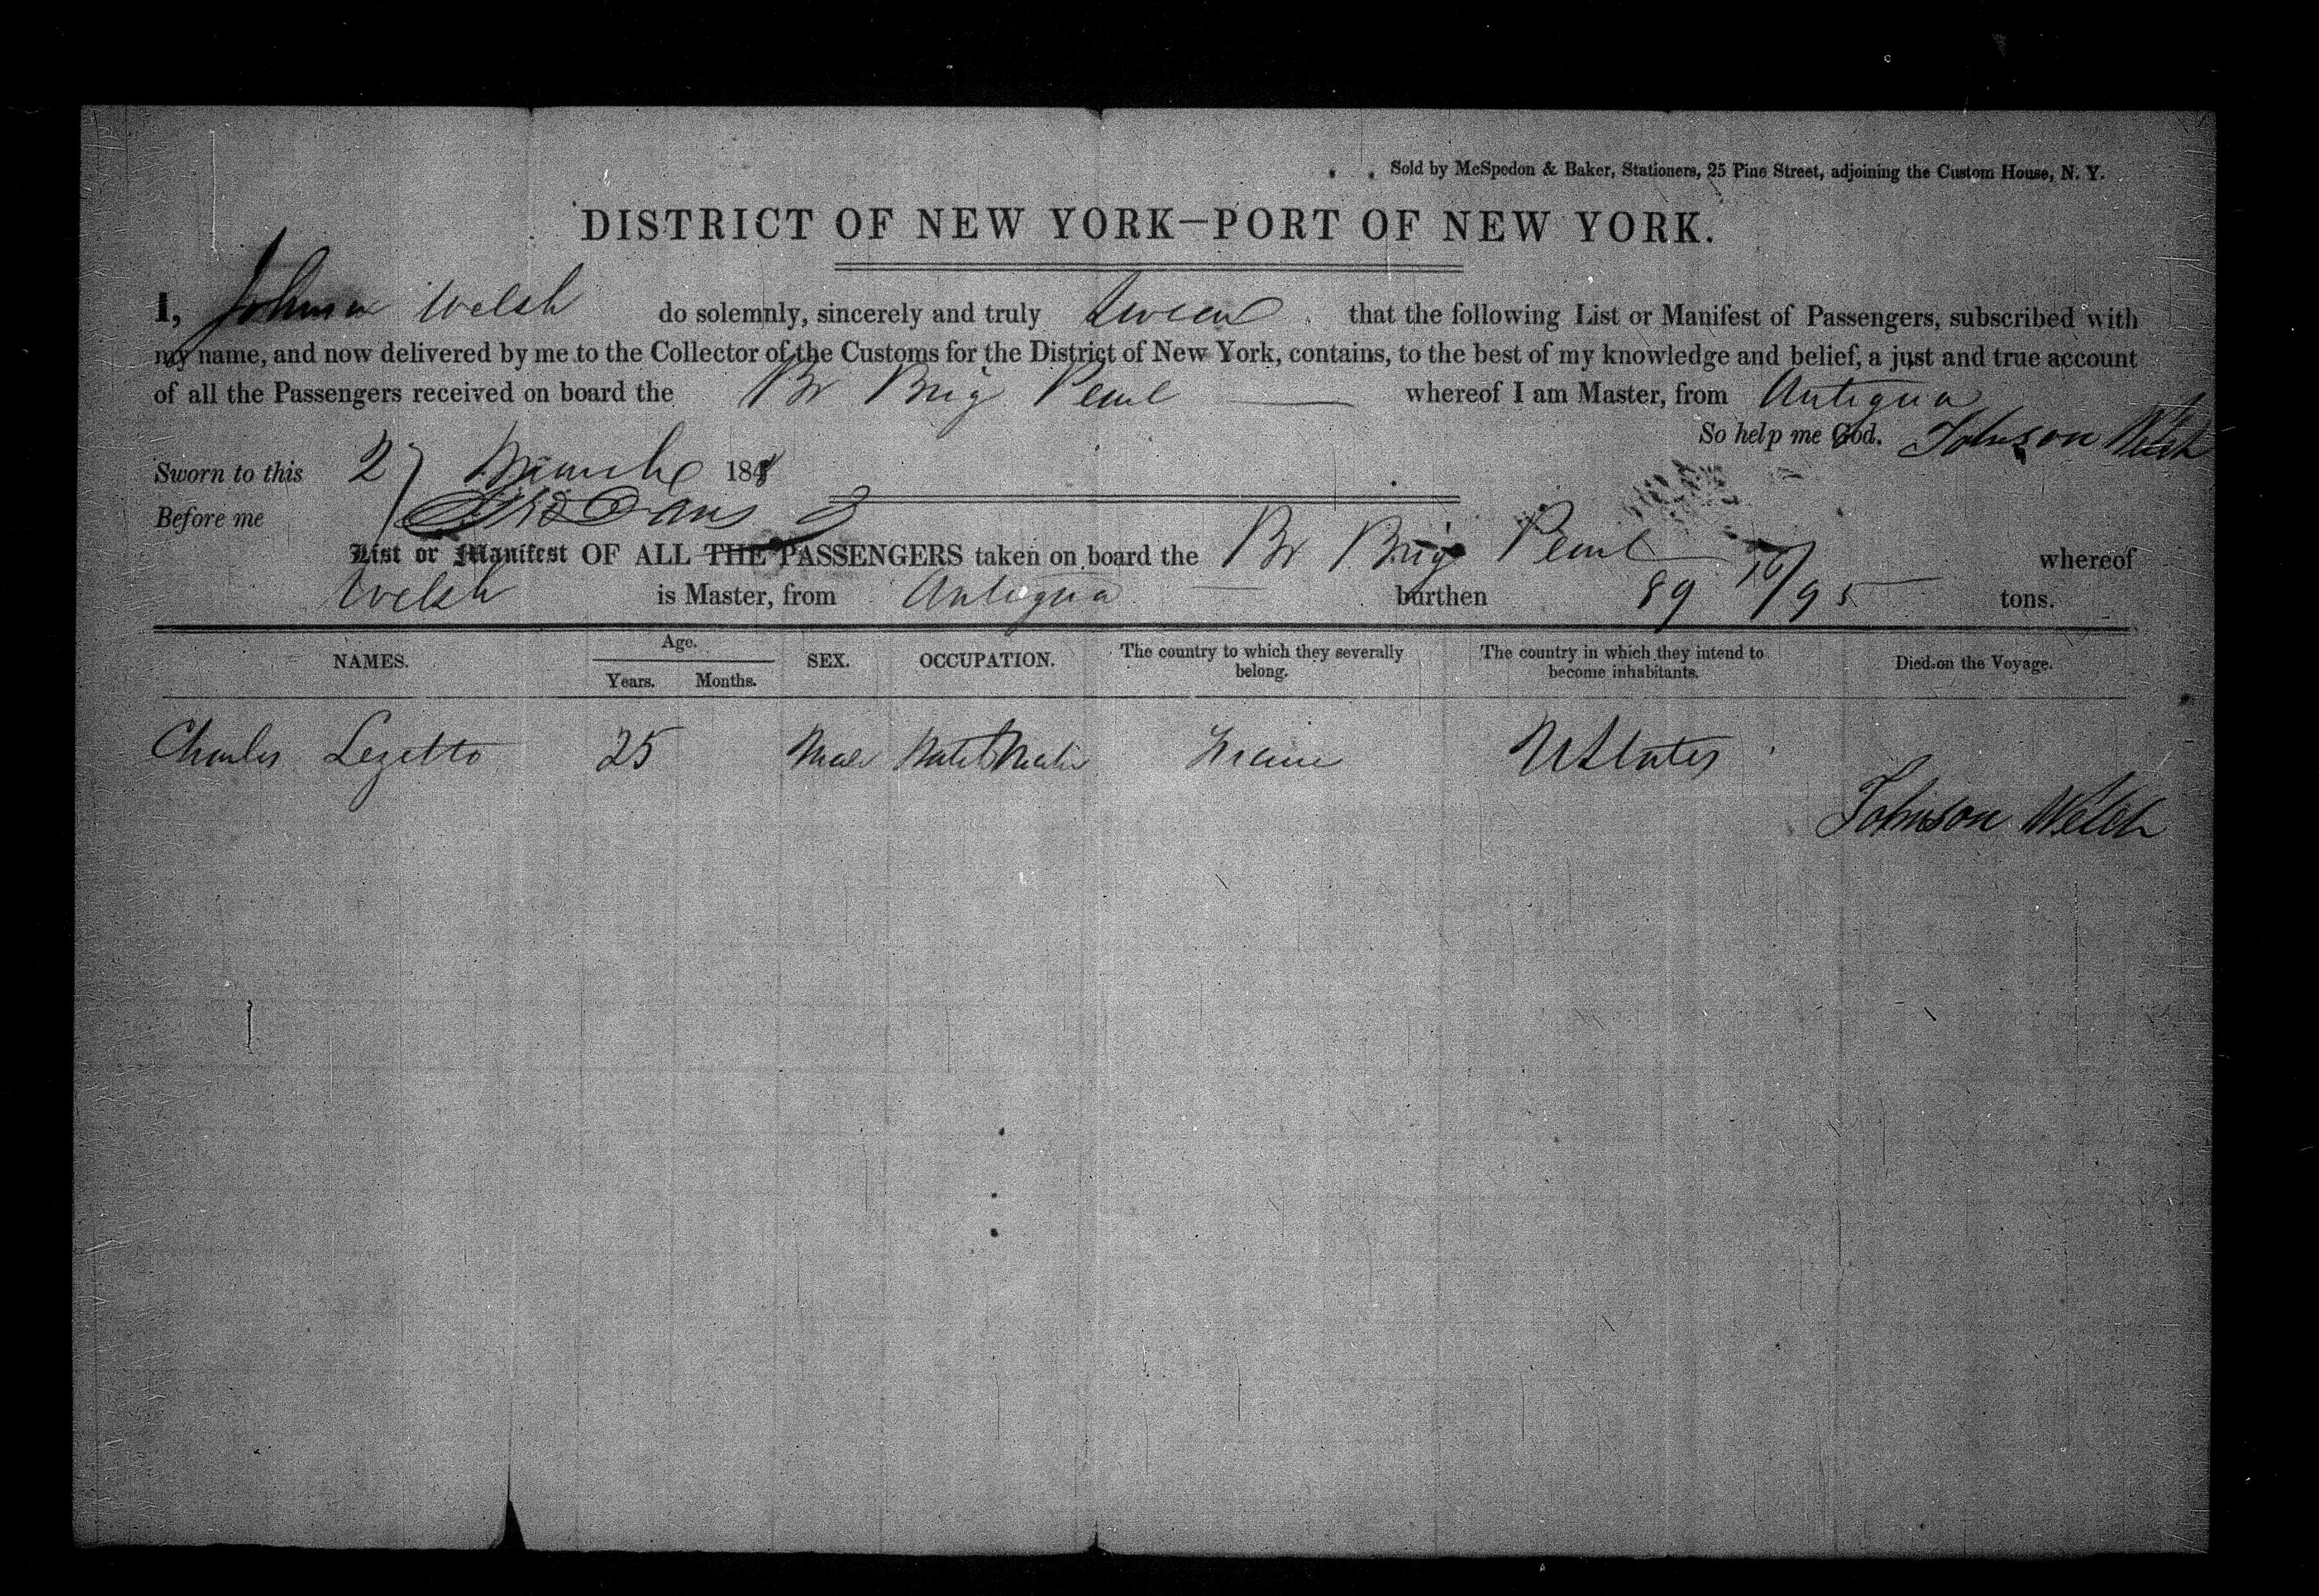 Sold by McSpedon & Baker, Stationers, 25 Pine Street, adjoining the Custom House, N. Y.
DISTRICT OF NEW YORK—PORT OF NEW YORK.
I, Johnson Welsh do solemnly, sincerely and truly swear that the following List or Manifest of Passengers, subscribed with
my name, and now delivered by me to the Collector of the Customs for the District of New York, contains, to the best of my knowledge and belief, a just and true account
of all the Passengers received on board the Br Brig Pearl whereof I am Master, from Antigua
So help me God. Johnson Welsh
Sworn to this 2 March 184
Before me
List or Manifest OF ALL THE PASSENGERS taken on board the Br Brig Pearl whereof
Welsh is Master, from Antigua burthen 89 /95 tons.
NAMES. Age. Years. Months. SEX. OCCUPATION. The country to which they severally belong. The country in which they intend to become inhabitants. Died on the Voyage.
Charles Lezetto 25 Male U States
Johnson Welsh